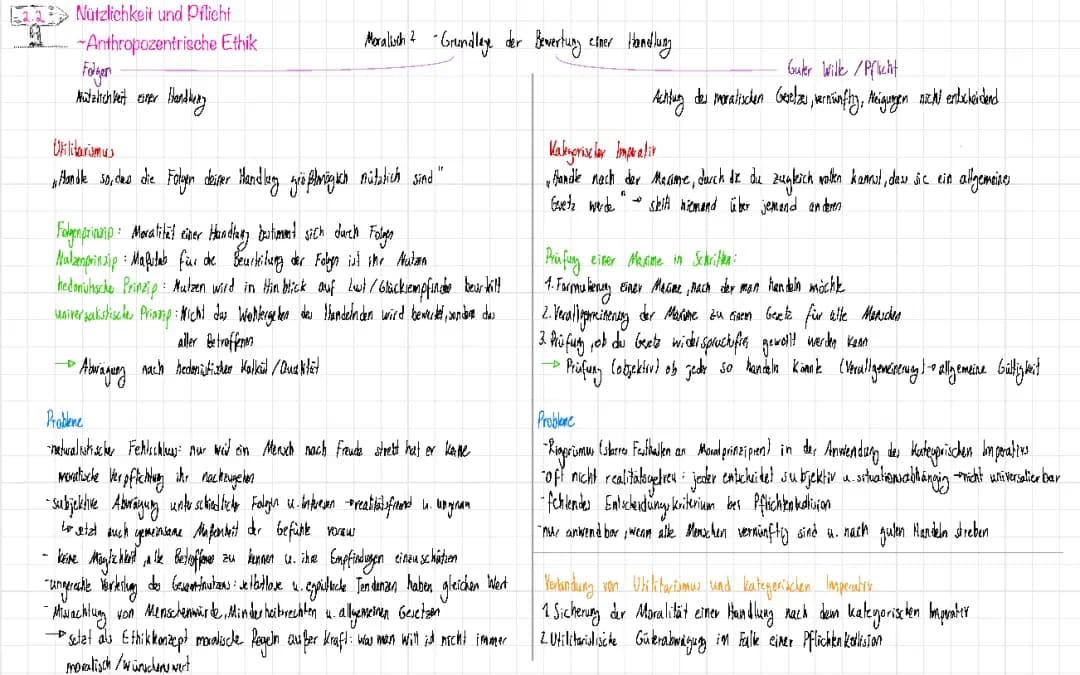 2.2 Nützlichkeit und Pflicht
~Anthropozentrische Ethik
Moralisch? - Grundlage der Bewertung einer Handlung
Folgen
Nützlichkeit einer Handlung
Utilitarismus
„Handle so, das die Folgen deiner Handlung größtmöglich nützlich sind"
Folgenprinzip: Moralität einer Handlung bestimmt sich durch Folgen
Nutzenprinzip: Maßstab für die Beurteilung der Folgen ist ihr Nutzen
hedonistische Prinzip: Nutzen wird in Hinblick auf Lust/Glücksempfinden beurteilt
universalistische Prinzip: Nicht das Wohlergehen des Handelnden wird bewertet, sondern das
aller Betroffenen
→ Abwägung nach hedonistischen Kalkül/Qualität
Probleme
-naturalistischer Fehlschluss: nur weil ein Mensch nach Freude strebt hat er keine
moralische Verpflichtung ihr nachzugehen
-subjektive Abwägung unterschiedlicher Folgen u. Interessen → realitätsfremd u. ungenau
↳ setzt auch gemeinsame Maßeinheit der Gefühle voraus
- keine Möglichkeit, alle Betroffenen zu kennen u. ihre Empfindungen einzuschätzen
-ungerechte Verteilung des Gesamtnutzens: selbstlose u. egoistische Tendenzen haben gleichen Wert
- Missachtung von Menschenwürde, Minderheitsrechten u. allgemeinen Gesetzen
→ setzt als Ethikkonzept moralische Regeln außer Kraft: was man will ist nicht immer
moralisch/wünschenswert
Guter Wille/Pflicht
Achtung des moralischen Gesetzes, vernünftig, Neigungen nicht entscheidend
Kategorischer Imperativ
„Handle nach der Maxime, durch die du zugleich wollen kannst, dass sie ein allgemeines
Gesetz werde" → stellt niemand über jemand anderen
Prüfung einer Maxime in Schritten:
1. Formulierung einer Maxime, nach der man handeln möchte
2. Verallgemeinerung der Maxime zu einem Gesetz für alle Menschen
3. Prüfung, ob das Gesetz widerspruchsfrei gewollt werden kann
→ Prüfung (objektiv) ob jeder so handeln könnte (Verallgemeinerung) → allgemeine Gültigkeit
Probleme
-Rigorismus (starres Festhalten an Moralprinzipien) in der Anwendung des Kategorischen Imperativs
-oft nicht realitätsgetreu: jeder entscheidet subjektiv u. situationsabhängig → nicht universalierbar
-fehlendes Entscheidungskriterium bei Pflichtenkollision
-nur anwendbar, wenn alle Menschen vernünftig sind u. nach guten Handeln streben
Verbindung von Utilitarismus und kategorischen Imperativ
1 Sicherung der Moralität einer Handlung nach dem kategorischen Imperativ
2. Utilitaristische Güterabwägung im Falle einer Pflichtenkollision